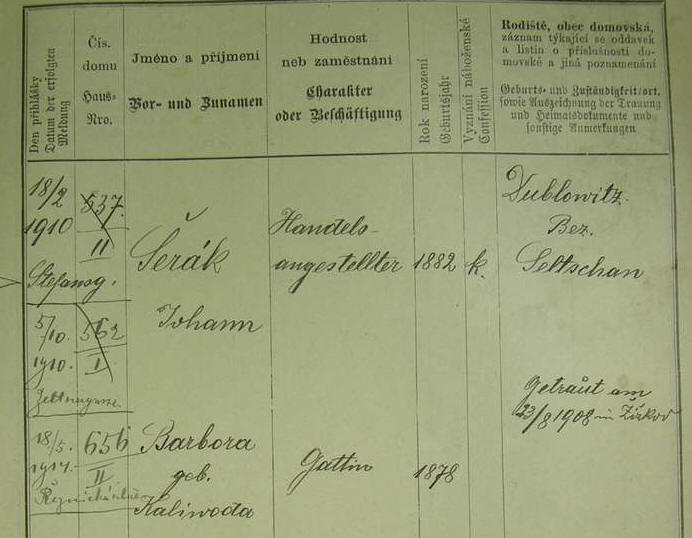 Den přihlášky
Datum der erfolgten
Meldung
Čís.
domu
Haus-
Nro.
Jméno a příjmení
Vor- und Zunamen
Hodnost
neb zaměstnání
Charakter
oder Beschäftigung
Rok narození
Geburtsjahr
Vyznání náboženské
Confession
Rodiště, obec domovská,
záznam týkající se oddavek
a listin o příslušnosti do-
movské a jiná poznamenání
Geburts- und Zuständigkeitsort,
sowie Aufzeichnung der Trauung
und Heimatsdokumente und
sonstige Anmerkungen
18/2
1910
537.
II
Stefansg.
Šerák
Johann
Handels-
angestellter
1882
k.
Dublowitz
Bez.
Seltschan
5/10.
1910.
562
I
Getraut am
23/8 1908 in Žižkov
18/5.
1917.
656
II
Řeznická
Barbora
geb.
Kaliwoda
Gattin
1878